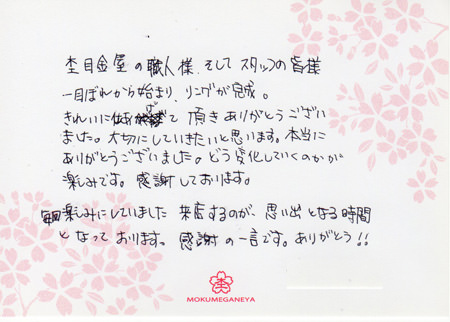 杢目金屋の職人様、そしてスタッフの皆様
一目ぼれから始まり、リングが完成。
きれいに て頂きありがとうござい
ました。大切にしていきたいと思います。本当に
ありがとうございました。どう変化していくのかが
楽しみです。感謝しております。
毎回楽しみにしていました 来店するのが、思い出となる時間
となっております。感謝の一言です。ありがとう!!
MOKUMEGANEYA